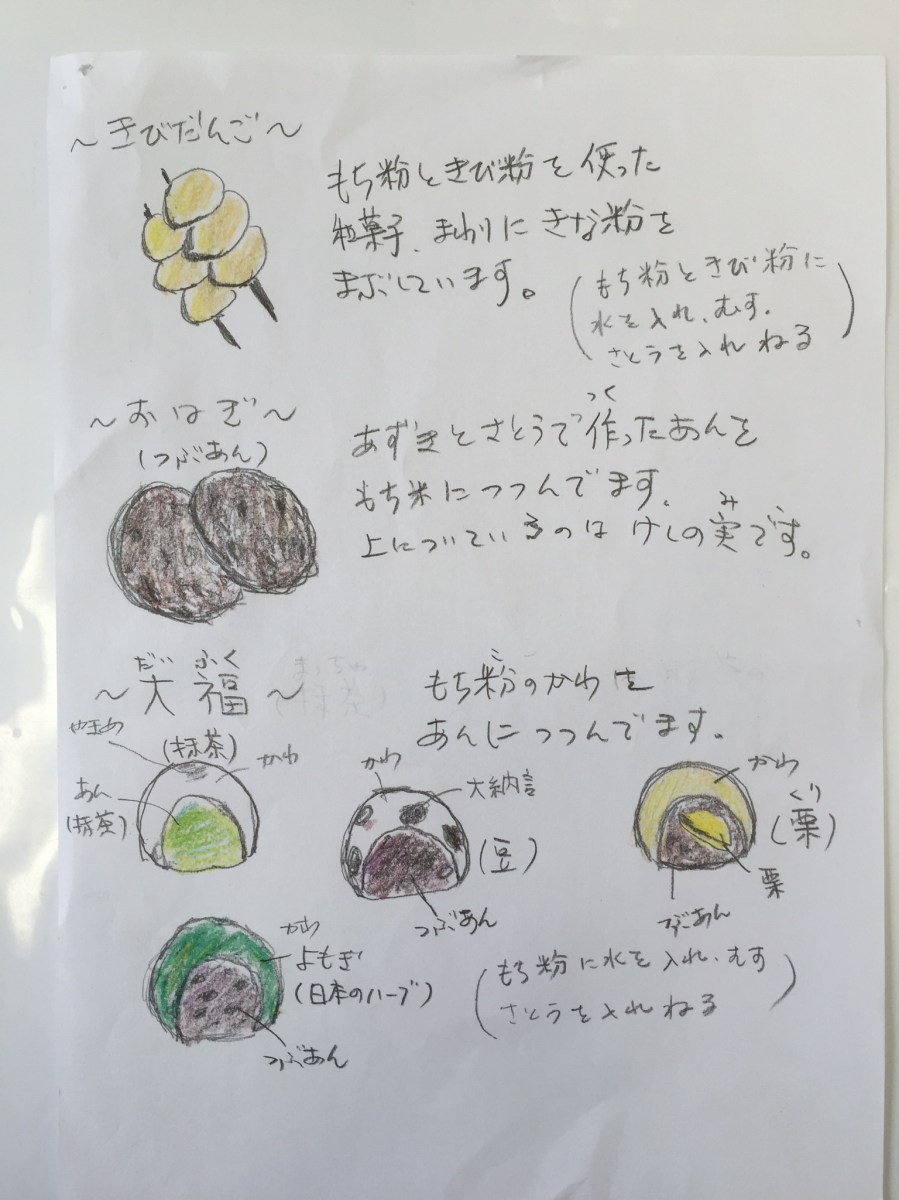 ～きびだんご～
もち粉ときび粉を使った
和菓子、まわりにきな粉を
まぶしています。
(もち粉ときび粉に
水を入れ、むす。
さとうを入れねる)
～おはぎ～
(つぶあん)
つく
あずきとさとうで作ったあんを
もち米につつんでます。
み
上についているのはけしの実です。
だい ふく
～大福～
こ
もち粉のかわを
あんにつつんでます。
(抹茶)
かわ
あん
(抹茶)
かわ
大納言
(豆)
つぶあん
かわ
くり
(栗)
栗
つぶあん
かわ
よもぎ
(日本のハーブ)
つぶあん
(もち粉に水を入れ、むす
さとうを入れねる)